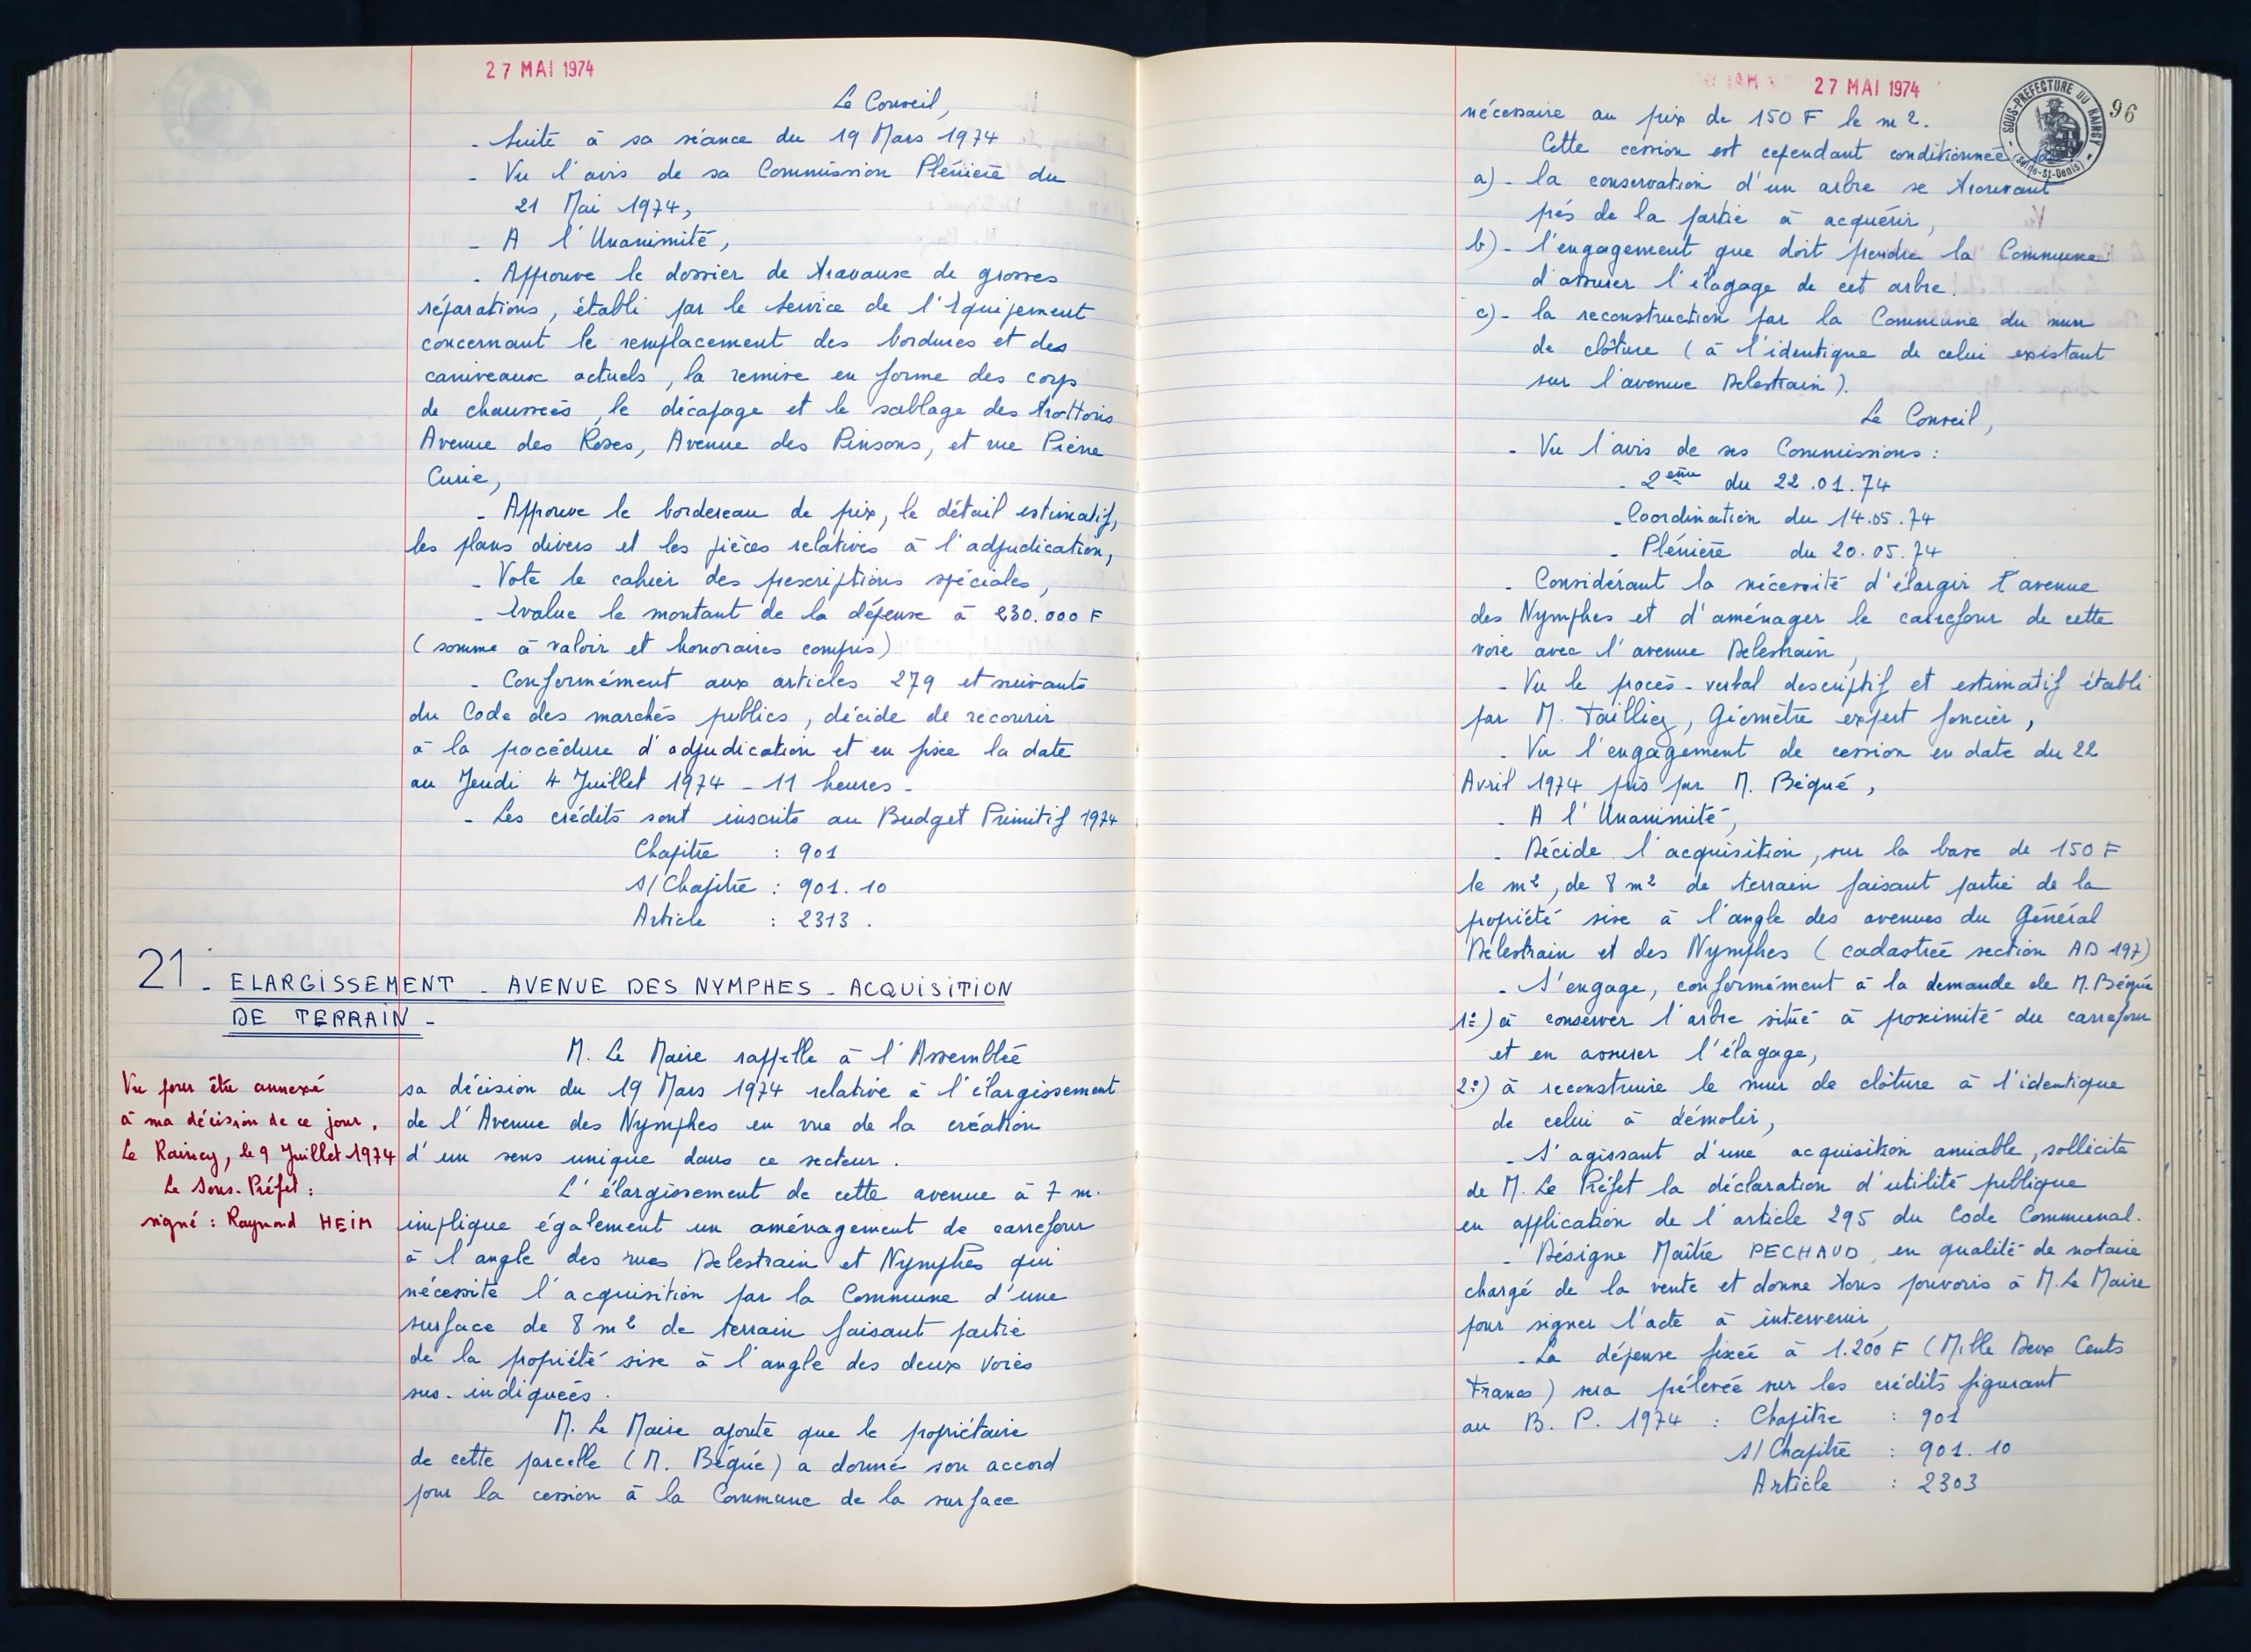 27 MAI 1974
Le Conseil,
- Suite à sa séance du 19 Mars 1974
- Vu l'avis de sa Commission Plénière du
21 Mai 1974,
- A l'Unanimité,
- Approuve le dossier de travaux de grosses
réparations, établi par le Service de l'Equipement
concernant le remplacement des bordures et des
caniveaux actuels, la remise en forme des corps
de chaussées, le décapage et le sablage des trottoirs
Avenue des Roses, Avenue des Pinsons, et rue Pierre
Curie,
- Approuve le bordereau de prix, le détail estimatif,
les plans divers et les pièces relatives à l'adjudication,
- Vote le cahier des prescriptions spéciales,
- Evalue le montant de la dépense à 230.000 F
(somme à valoir et honoraires compris)
- Conformément aux articles 279 et suivants
du Code des marchés publics, décide de recourir
à la procédure d'adjudication et en fixe la date
au Jeudi 4 Juillet 1974 - 11 heures -
- Les crédits sont inscrits au Budget Primitif 1974
Chapitre : 901
S/Chapitre : 901.10
Article : 2313.
21 - ELARGISSEMENT - AVENUE DES NYMPHES - ACQUISITION
DE TERRAIN -
M. Le Maire rappelle à l'Assemblée
sa décision du 19 Mars 1974 relative à l'élargissement
de l'Avenue des Nymphes en vue de la création
d'un sens unique dans ce secteur.
L'élargissement de cette avenue à 7 m.
implique également un aménagement de carrefour
à l'angle des rues Delestrain et Nymphes qui
nécessite l'acquisition par la Commune d'une
surface de 8 m2 de terrain faisant partie
de la propriété sise à l'angle des deux voies
sus-indiquées.
M. Le Maire ajoute que le propriétaire
de cette parcelle (M. Bégué) a donné son accord
pour la cession à la Commune de la surface
Vu pour être annexé
à ma décision de ce jour.
Le Raincy, le 9 Juillet 1974
Le Sous-Préfet :
signé : Raymond HEIM
27 MAI 1974
96
SOUS-PREFECTURE DU RAINCY
(Seine-St-Denis)
nécessaire au prix de 150 F le m2.
Cette cession est cependant conditionnée
a) - la conservation d'un arbre se trouvant
près de la partie à acquérir,
b) - l'engagement que doit prendre la Commune
d'assurer l'élagage de cet arbre.
c) - la reconstruction par la Commune du mur
de clôture (à l'identique de celui existant
sur l'avenue Delestrain).
Le Conseil,
- Vu l'avis de ses Commissions :
- 2ème du 22.01.74
- Coordination du 14.05.74
- Plénière du 20.05.74
- Considérant la nécessité d'élargir l'avenue
des Nymphes et d'aménager le carrefour de cette
voie avec l'avenue Delestrain,
- Vu le procès-verbal descriptif et estimatif établi
par M. Taillier, Géomètre expert foncier,
- Vu l'engagement de cession en date du 22
Avril 1974 pris par M. Bégué,
- A l'Unanimité,
- Décide l'acquisition, sur la base de 150 F
le m2, de 8 m2 de terrain faisant partie de la
propriété sise à l'angle des avenues du Général
Delestrain et des Nymphes (cadastrée section AD 197)
- S'engage, conformément à la demande de M. Bégué
1°) à conserver l'arbre situé à proximité du carrefour
et en assurer l'élagage,
2°) à reconstruire le mur de clôture à l'identique
de celui à démolir,
- S'agissant d'une acquisition amiable, sollicite
de M. Le Préfet la déclaration d'utilité publique
en application de l'article 295 du Code Communal.
- Désigne Maître PECHAUD, en qualité de notaire
chargé de la vente et donne tous pouvoirs à M. Le Maire
pour signer l'acte à intervenir,
- La dépense fixée à 1.200 F (Mille Deux Cents
Francs) sera prélevée sur les crédits figurant
au B. P. 1974 : Chapitre : 901
S/Chapitre : 901.10
Article : 2303